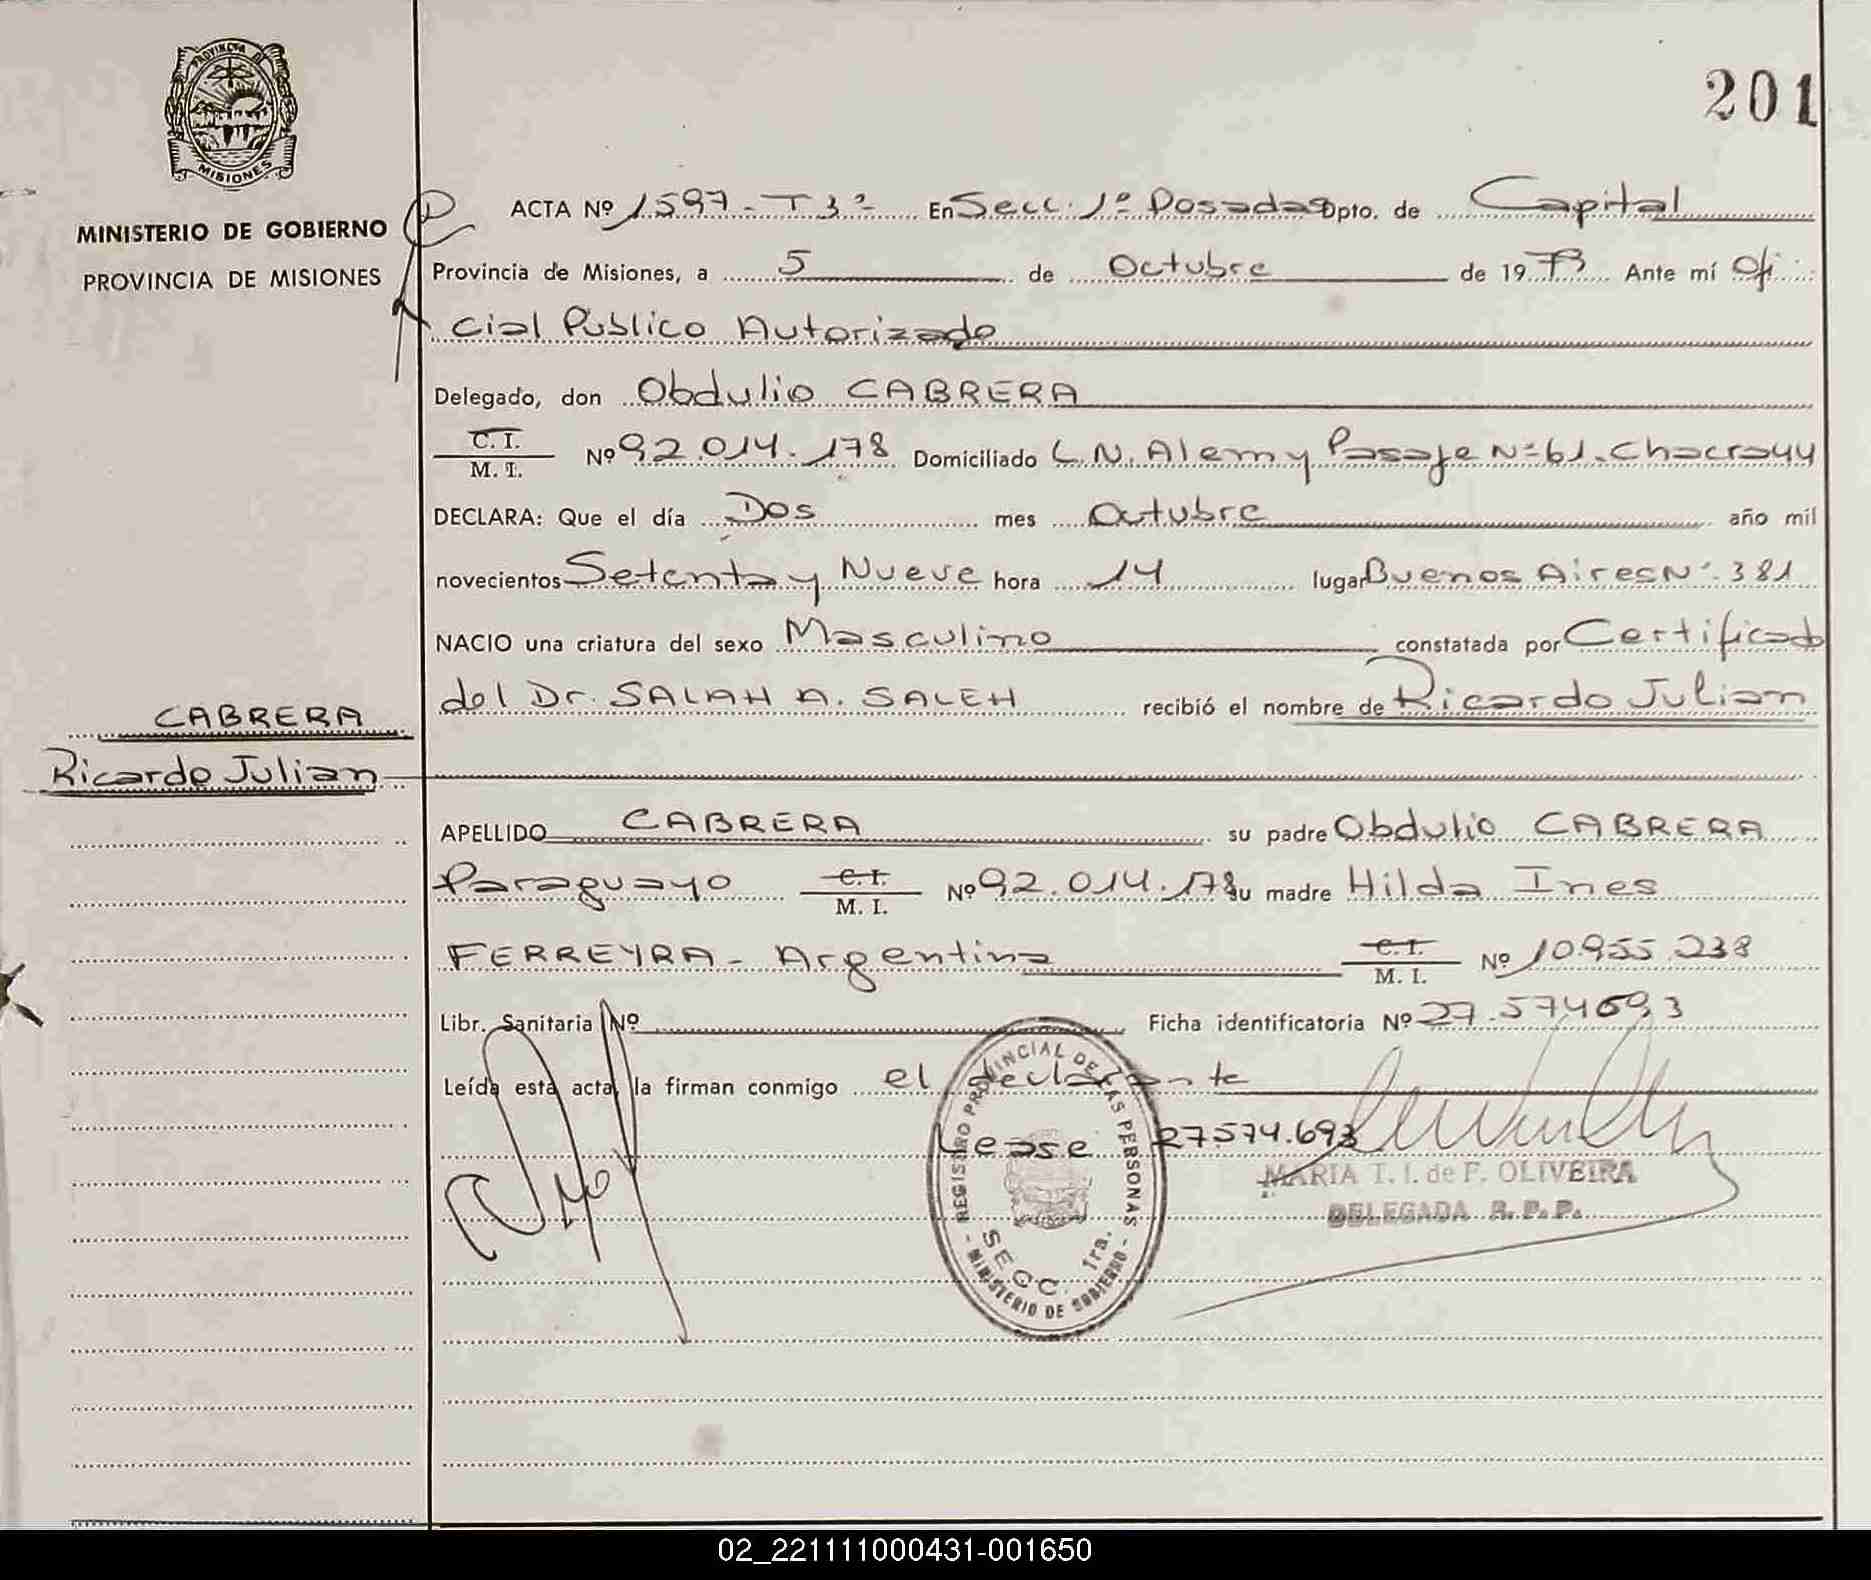 PROVINCIA DE
MISIONES
201
MINISTERIO DE GOBIERNO
PROVINCIA DE MISIONES
ACTA Nº 1597-T3º- En Secc. 1º Posadas Dpto. de Capital
Provincia de Misiones, a 5 de Octubre de 1979 Ante mí Ofi
cial Publico Autorizado
Delegado, don Obdulio CABRERA
C. I.
M. I.
Nº 92.014.178 Domiciliado L.N. Alem y Pasaje Nº 61. Chacra 44
DECLARA: Que el día Dos mes Octubre año mil
novecientos Setenta y Nueve hora 14 lugar Buenos Aires Nº 381
NACIO una criatura del sexo Masculino constatada por Certificado
del Dr. SALAH A. SALEH recibió el nombre de Ricardo Julian
CABRERA
Ricardo Julian
APELLIDO CABRERA su padre Obdulio CABRERA
Paraguayo C. I.
M. I.
Nº 92.014.178 su madre Hilda Ines
FERREYRA - Argentina C. I.
M. I.
Nº 10.955.238
Libr. Sanitaria Nº Ficha identificatoria Nº 27.574693
Leída esta acta, la firman conmigo el declarante
Lease 27.574.693
REGISTRO PROVINCIAL DE LAS PERSONAS
SECC. 1ra.
- MINISTERIO DE GOBIERNO -
MARIA T. I. de F. OLIVEIRA
DELEGADA R. P. P.
02_221111000431-001650